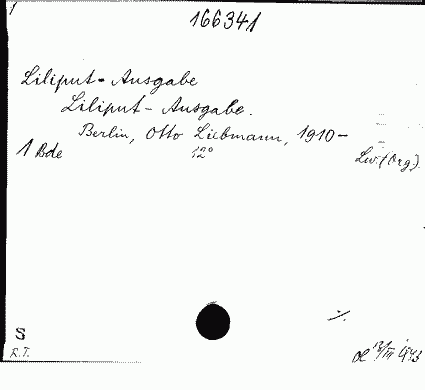 166341
Liliput-Ausgabe
Liliput-Ausgabe.
Berlin, Otto Liebmann, 1910-
1 Bde 12° Lw. (Org.)
S
R.T.